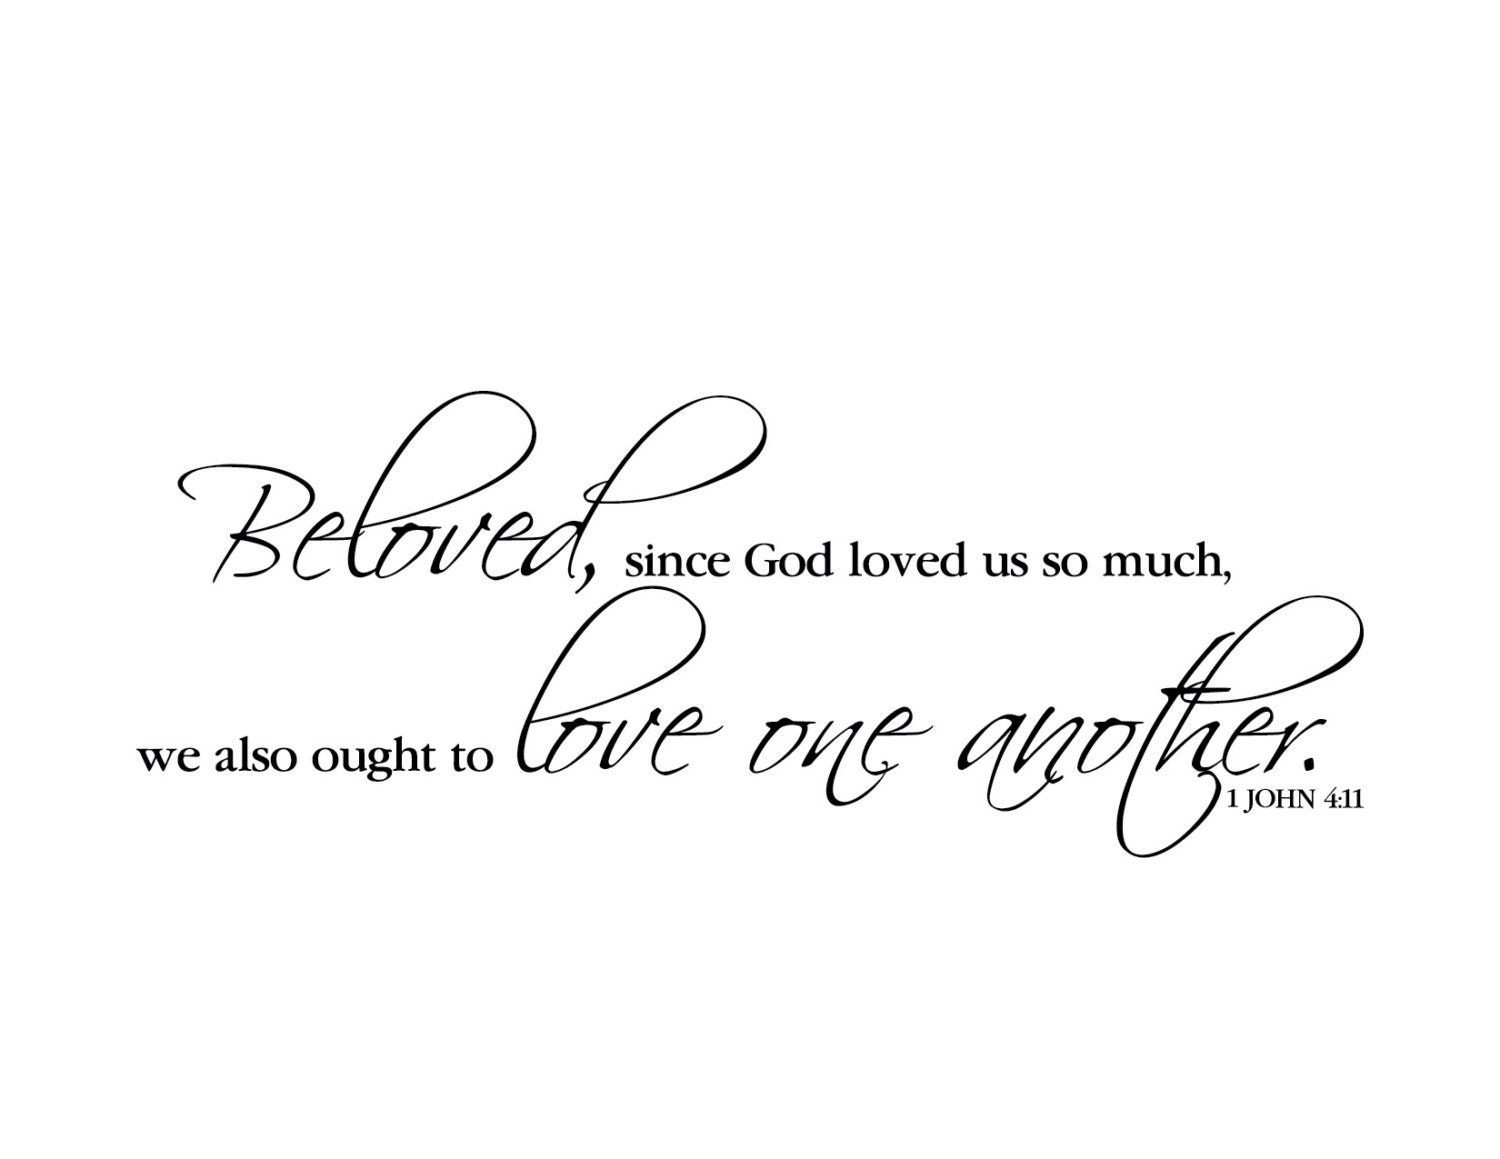 Beloved, since God loved us so much,
we also ought to love one another.
1 JOHN 4:11